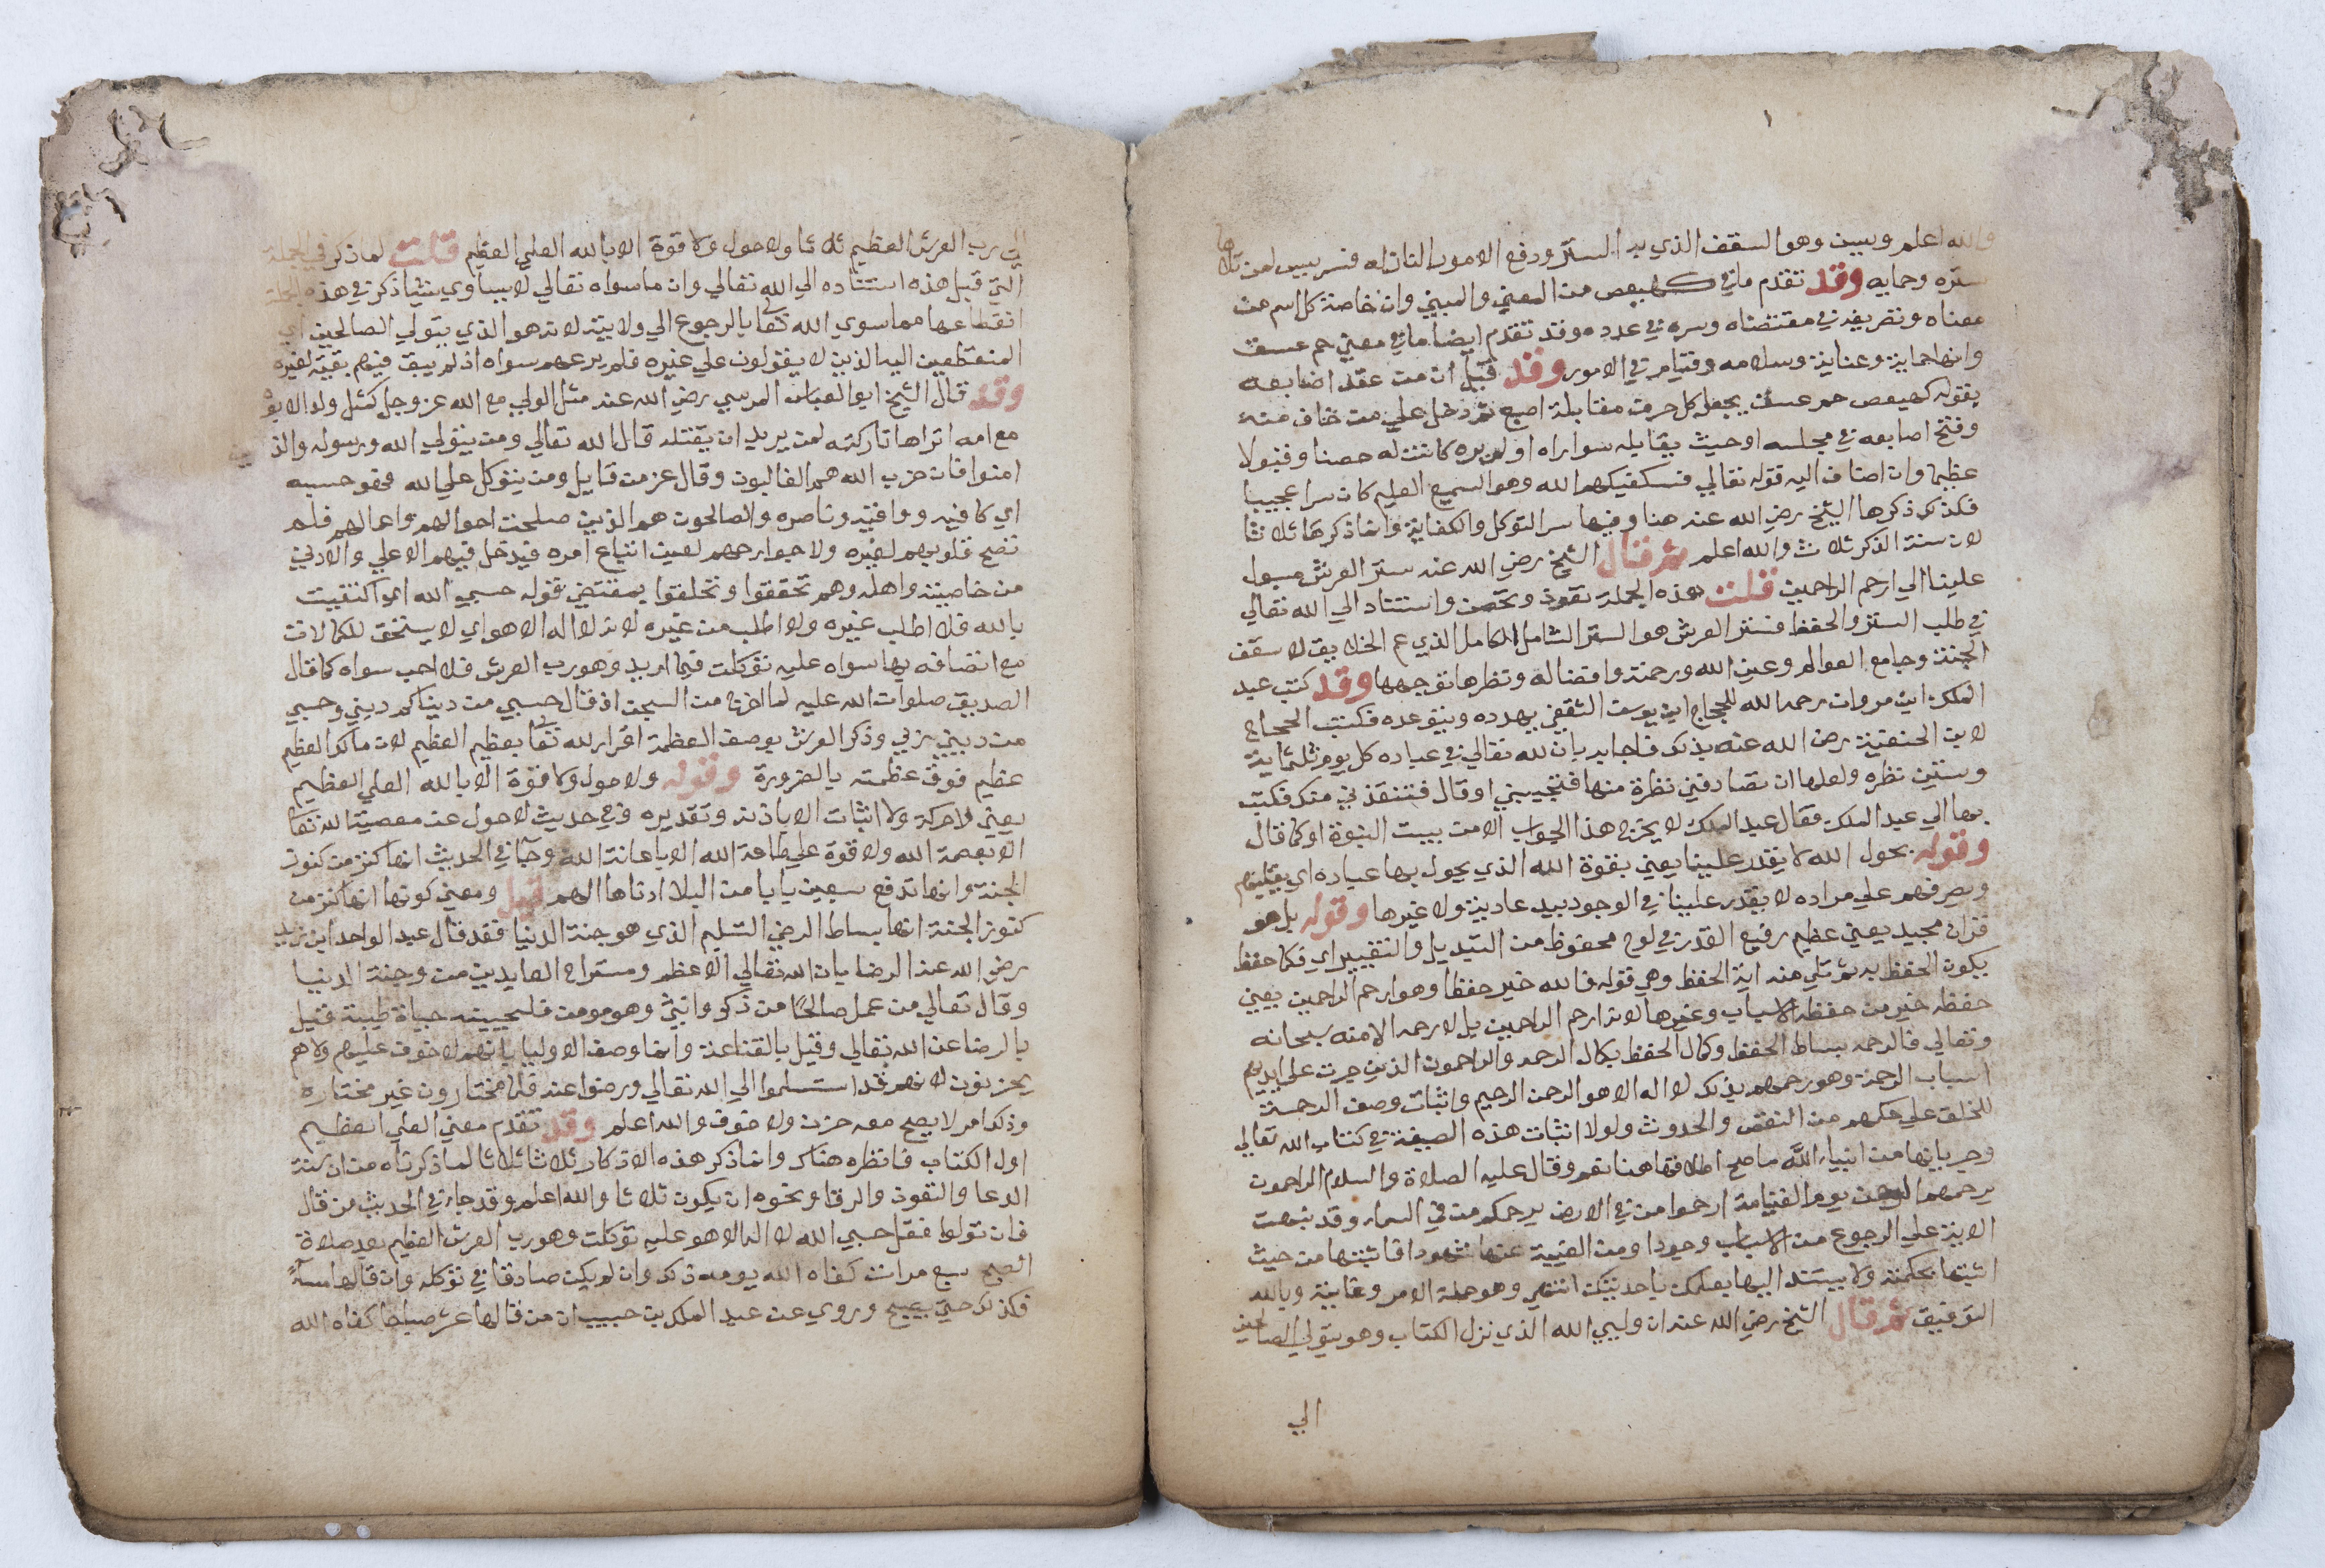 والله اعلم ويسين وهو السقف الذي به الستر ودفع الامور النازله فسر يسين لمن تلاها
ستره وحمايه وقد تقدم ما في كهيعص من المعني والمبني وان خاصة كل اسم من
معناه وتصريفه في مقتضاه وسره في عدده وقد تقدم ايضا ما في معني حم عسق
وانها حماية وعناية وسلامه وقيام في الامور وقد قيل ان من عقد اصابعه
بقوله كهيعص حم عسق يجعل كل حرف مقابلة اصبع ثم دخل علي من خاف منه
وفتح اصابعه في مجلسه او حيث يقابله سوا راه او لم يره كانت له حصنا وقبولا
عظيما وان اضاف اليه قوله تعالي فسيكفيكهم الله وهو السميع العليم كان سرا عجيبا
فلذلك ذكرها الشيخ رضي الله عنه هنا وفيها سر التوكل والكفاية وانما ذكرها ثلاثا
لان سنة الذكر ثلاث والله اعلم ثم قال الشيخ رضي الله عنه ستر العرش مسبول
علينا الي ارحم الراحمين قلت هذه الجملة تعوذ وتحصن واستناد الي الله تعالي
في طلب الستر والحفظ فستر العرش هو الستر الشامل الكامل الذي عم الخلايق لا سقف
الجنة وجامع العوالم وعين الله ورحمته وافضاله ونظرها توجهها وقد كتب عبد
الملك ابن مروان رحمه الله للحجاج ابن يوسف الثقفي يهدده ويتوعده فكتب الحجاج
لابن الحنفية رضي الله عنه بذلك فاجابه بان لله تعالي في عباده كل يوم ثلثماية
وستين نظره ولعلها ان تصادفني نظرة منها فتنجيني او قال فتنقذني منك فكتب
بها الي عبد الملك فقال عبد الملك لا يخرج هذا الجواب الا من بيت النبوة او كما قال
وقوله بحول الله لا يقدر علينا يعني بقوة الله الذي يحول بها عباده اي يقلبهم
ويصرفهم علي مراده لا يقدر علينا في الوجود بيد عادية ولا غيرها وقوله بل هو
قران مجيد يعني عظيم رفيع القدر في لوح محفوظ من التبديل والتغيير اي فكما حفظ
يكون الحفظ به ثم تلي منه اية الحفظ وهي قوله فالله خير حفظا وهو ارحم الراحمين يعني
حفظه خير من حفظ الاسباب وغيرها لانه ارحم الراحمين بل لا رحمه الا منه سبحانه
وتعالي فالرحمه بساط الحفظ وكمال الحفظ بكمال الرحمه والراحمون الذين جرت علي ايديهم
اسباب الرحمة وهو رحمهم بذلك لا اله الا هو الرحمن الرحيم واثبات وصف الرحمة
للخلق علي حكمهم من النقص والحدوث ولولا اثبات هذه الصيغة في كتاب الله تعالي
وجريانها من انبياء الله ما صح اطلاقها هنا نعم وقال عليه الصلاة والسلام الراحمون
يرحمهم الرحمن يوم القيامة ارحموا من في الارض يرحمكم من في السماء وقد نبهت
الاية علي الرجوع من الاسباب وجودا ومن الغيبة عنها شهودا فاثبتها من حيث
اثبتها بحكمته ولا يستند اليها بعلمك باحديتك انتهي وهو جملة الامر وغاية وبالله
التوفيق ثم قال الشيخ رضي الله عنه ان وليي الله الذي نزل الكتاب وهو يتولي الصالحين
الي
الي رب العرش العظيم ثلاثا ولا حول ولا قوة الا بالله العلي العظيم قلت لما ذكر في الجملة
التي قبل هذه استناده الي الله تعالي وان ما سواه تعالي لا يساوي شيا ذكر في هذه الجملة
انقطاعها مما سوي الله تعا بالرجوع الي ولايته لانه هو الذي يتولي الصالحين اي
المنقطعين اليه الذين لا يعولون علي غيره فلم يرعهم سواه اذ لم يبق فيهم بقية لغيره
وقد قال الشيخ ابو العباس المرسي رضي الله عنه مثل الولي مع الله عز وجل كمثل ولد اللبوه
مع امه اتراها تاركته لمن يريد ان يقتله قال الله تعالي ومن يتولي الله ورسوله والذين
امنوا فان حزب الله هم الغالبون وقال عز من قايل ومن يتوكل علي الله فهو حسبه
اي كافيه وواقيه وناصره والصالحون هم الذين صلحت احوالهم واعمالهم فلم
تضح قلوبهم لغيره ولا جوارحهم لغير اتباع امره فيدخل فيهم الاعلي والادني
من خاصيته واهله وهم تحققوا وتخلقوا بمقتضي قوله حسبي الله اي اكتفيت
بالله فلا اطلب غيره ولا اطلب من غيره لانه لا اله الا هو اي لا يستحق للكمالات
مع اتصافه بها سواه عليه توكلت فيما اريد وهو رب العرش فلا احب سواه كما قال
الصديق صلوات الله عليه لما اخرج من السجن اذ قال حسبي من دنياكم ديني وحسبي
من ديني ربي وذكر العرش بوصف العظمة اقرار لله تعا بعظيم العظيم لان مالك العظيم
عظيم فوق عظمته بالضرورة وقوله ولا حول ولا قوة الا بالله العلي العظيم
يعني لا حركة ولا اثبات الا باذنه وتقديره وفي حديث لا حول عن معصية الله تعا
الا بعصمة الله ولا قوة علي طاعة الله الا باعانة الله وجا في الحديث انها كنز من كنوز
الجنة وانها تدفع سبعين بابا من البلا ادناها الهم قيل ومعني كونها انها كنز من
كنوز الجنة انها بساط الرضي التسليم الذي هو جنة الدنيا فقد قال عبد الواحد ابن زيد
رضي الله عنه الرضا باب الله تعالي الاعظم ومستراح العابدين من وجنة الدنيا
وقال تعالي من عمل صالحا من ذكر وانثي وهو مومن فلنحيينه حياة طيبة قيل
بالرضا عن الله تعالي وقيل بالقناعة وانما وصف الاوليا بانهم لا خوف عليهم ولا هم
يحزنون لانهم قد استسلموا الي الله تعالي ورضوا عنه فلا مختارون غير مختاره
وذلك امر لا يصح معه حزن ولا خوف والله اعلم وقد تقدم معني العلي العظيم
اول الكتاب فانظره هناك وانما ذكر هذه الاذكار ثلاثا ثلاثا لما ذكرناه من ان سنة
الدعا والتعوذ والرقا ونحوه ان يكون ثلاثا والله اعلم وقد جاء في الحديث من قال
فان تولوا فقل حسبي الله لا اله الا هو عليه توكلت وهو رب العرش العظيم بعد صلاة
الصبح سبع مرات كفاه الله يومه ذلك وان لم يكن صادقا في توكله وان قالها مساءً
فكذلك حتي يصبح وروي عن عبد الملك بن حبيب ان من قالها عشر صباحا كفاه الله